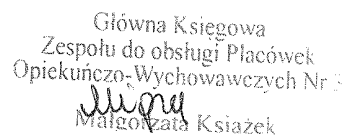 Główna Księgowa
Zespołu do obsługi Placówek
Opiekuńczo-Wychowawczych Nr
Małgorzata Książek